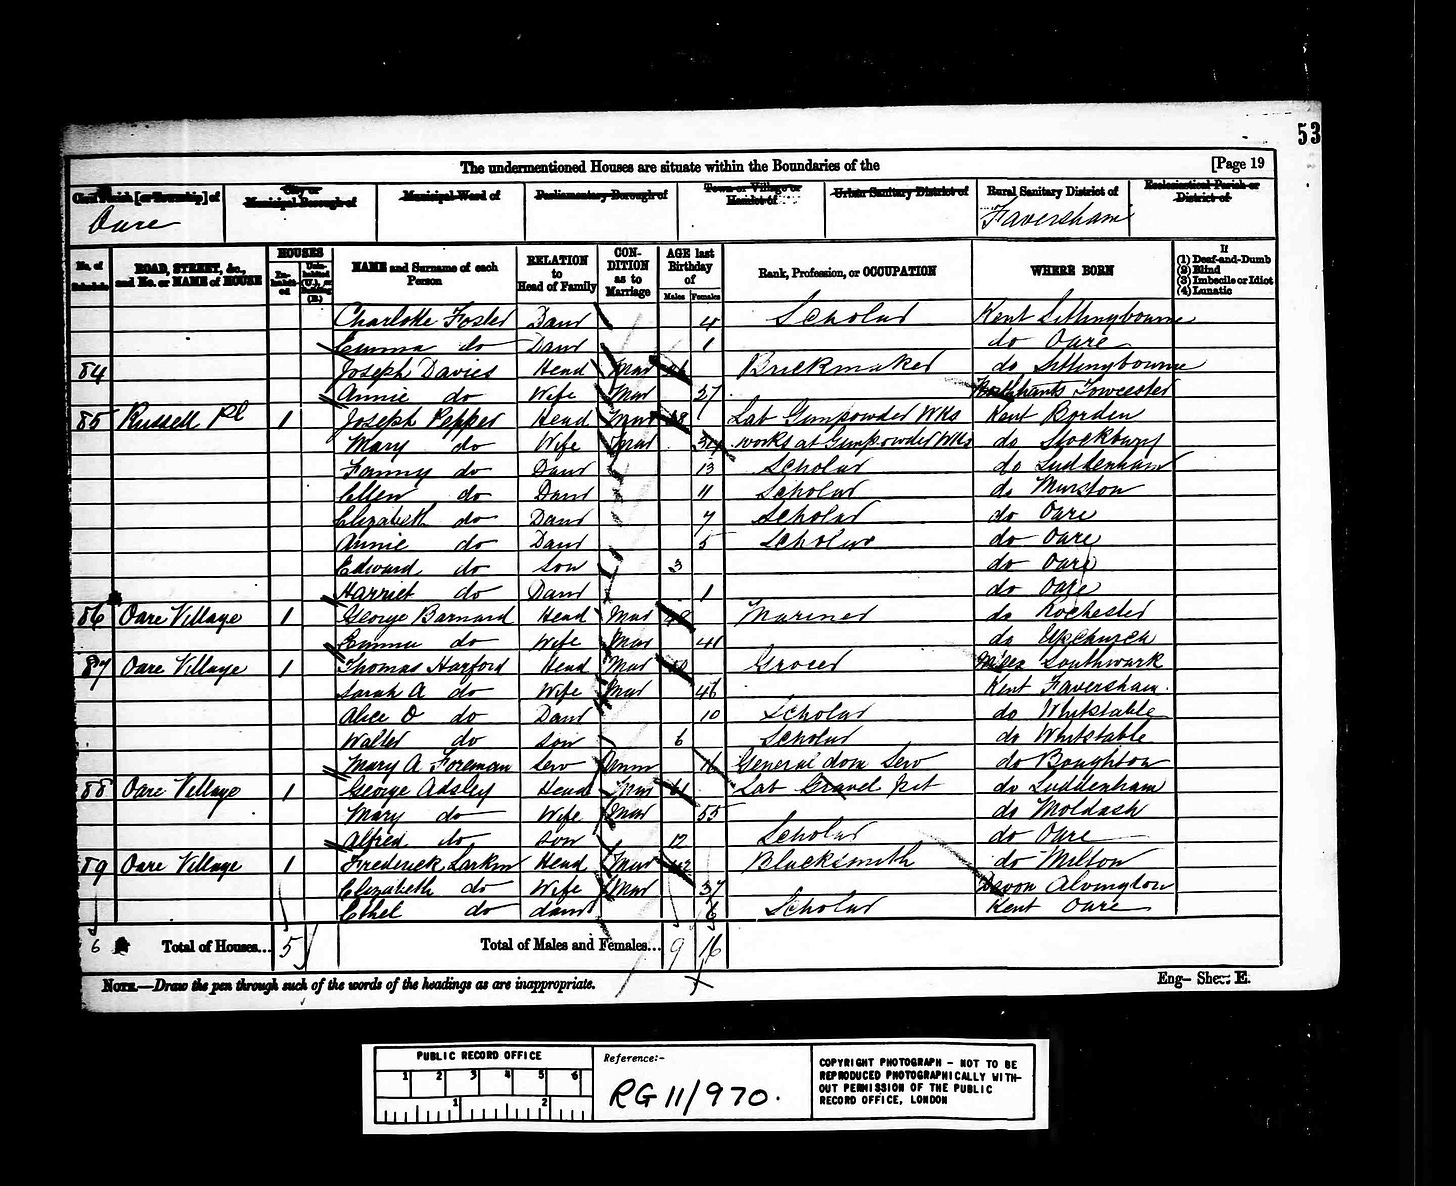 53
The undermentioned Houses are situate within the Boundaries of the [Page 19
Civil Parish [or Township] of City or Municipal Borough of Municipal Ward of Parliamentary Borough of Town or Village or Hamlet of Urban Sanitary District of Rural Sanitary District of Ecclesiastical Parish or District of
Oare Faversham
No. of Schedule ROAD, STREET, &c., and No. or NAME of HOUSE HOUSES Inhabited Uninhabited (U.), or Building (B.) NAME and Surname of each Person RELATION to Head of Family CONDITION as to Marriage AGE last Birthday of Males Females Rank, Profession, or OCCUPATION WHERE BORN If (1) Deaf-and-Dumb (2) Blind (3) Imbecile or Idiot (4) Lunatic
Charlotte Foster Daur 4 Scholar Kent Sittingbourne
Emma do Daur 1 do Oare
84 Joseph Davies Head Mar Brickmaker do Sittingbourne
Annie do Wife Mar 37 Northhants Towcester
85 Russell Pl 1 Joseph Pepper Head Mar Lab Gunpowder Wks Kent Borden
Mary do Wife Mar 34 works at Gunpowder Wks do Stockbury
Fanny do Daur 13 Scholar do Luddenham
Ellen do Daur 11 Scholar do Murston
Elizabeth do Daur 7 Scholar do Oare
Annie do Daur 5 Scholar do Oare
Edward do Son 3 do Oare
Harriet do Daur 1 do Oare
86 Oare Village 1 George Barnard Head Mar Mariner do Rochester
Emma do Wife Mar 41 do Upchurch
87 Oare Village 1 Thomas Harford Head Mar Grocer Southwark
Sarah A do Wife Mar 46 Kent Faversham
Alice O do Daur 10 Scholar do Whitstable
Walter do Son 6 Scholar do Whitstable
Mary A Foreman Serv Unm 16 General dom Serv do Boughton
88 Oare Village 1 George Adsley Head Mar 61 Lab Gravel Pit do Luddenham
Mary do Wife Mar 55 do Moldash
Alfred do Son 12 Scholar do Oare
89 Oare Village 1 Frederick Larkin Head Mar 42 Blacksmith do Milton
Elizabeth do Wife Mar 37 Devon Alvington
Ethel do daur 6 Scholar Kent Oare
6 Total of Houses... 5 Total of Males and Females... 9 16
NOTE.—Draw the pen through such of the words of the headings as are inappropriate.
Eng— Sheet E.
PUBLIC RECORD OFFICE
1 2 3 4 5 6
1 2
Reference:-
RG 11/970.
COPYRIGHT PHOTOGRAPH - NOT TO BE
REPRODUCED PHOTOGRAPHICALLY WITH-
OUT PERMISSION OF THE PUBLIC
RECORD OFFICE, LONDON